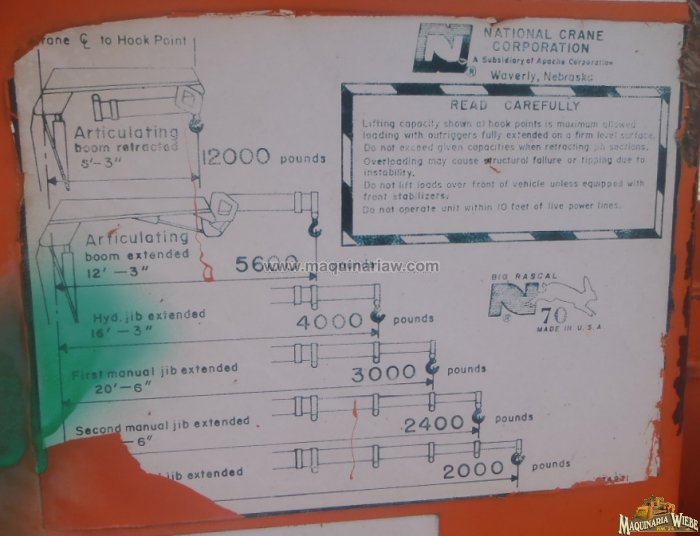 rane ℄ to Hook Point
N
®
NATIONAL CRANE
CORPORATION
A Subsidiary of Apache Corporation
Waverly, Nebraska
READ CAREFULLY
Lifting capacity shown at hook points is maximum allowed
loading with outriggers fully extended on a firm level surface.
Do not exceed given capacities when retracting jib sections.
Overloading may cause structural failure or tipping due to
instability.
Do not lift loads over front of vehicle unless equipped with
front stabilizers.
Do not operate unit within 10 feet of live power lines.
Articulating
boom retracted
5'-3"
12000 pounds
Articulating
boom extended
12'-3"
5600
www.maquinariaw.com
BIG RASCAL
N
®
70
MADE IN U.S.A
Hyd. jib extended
16'-3"
4000 pounds
First manual jib extended
20'-6"
3000 pounds
Second manual jib extended
-6"
2400 pounds
jib extended
2000 pounds
MAQUINARIA WIEBE